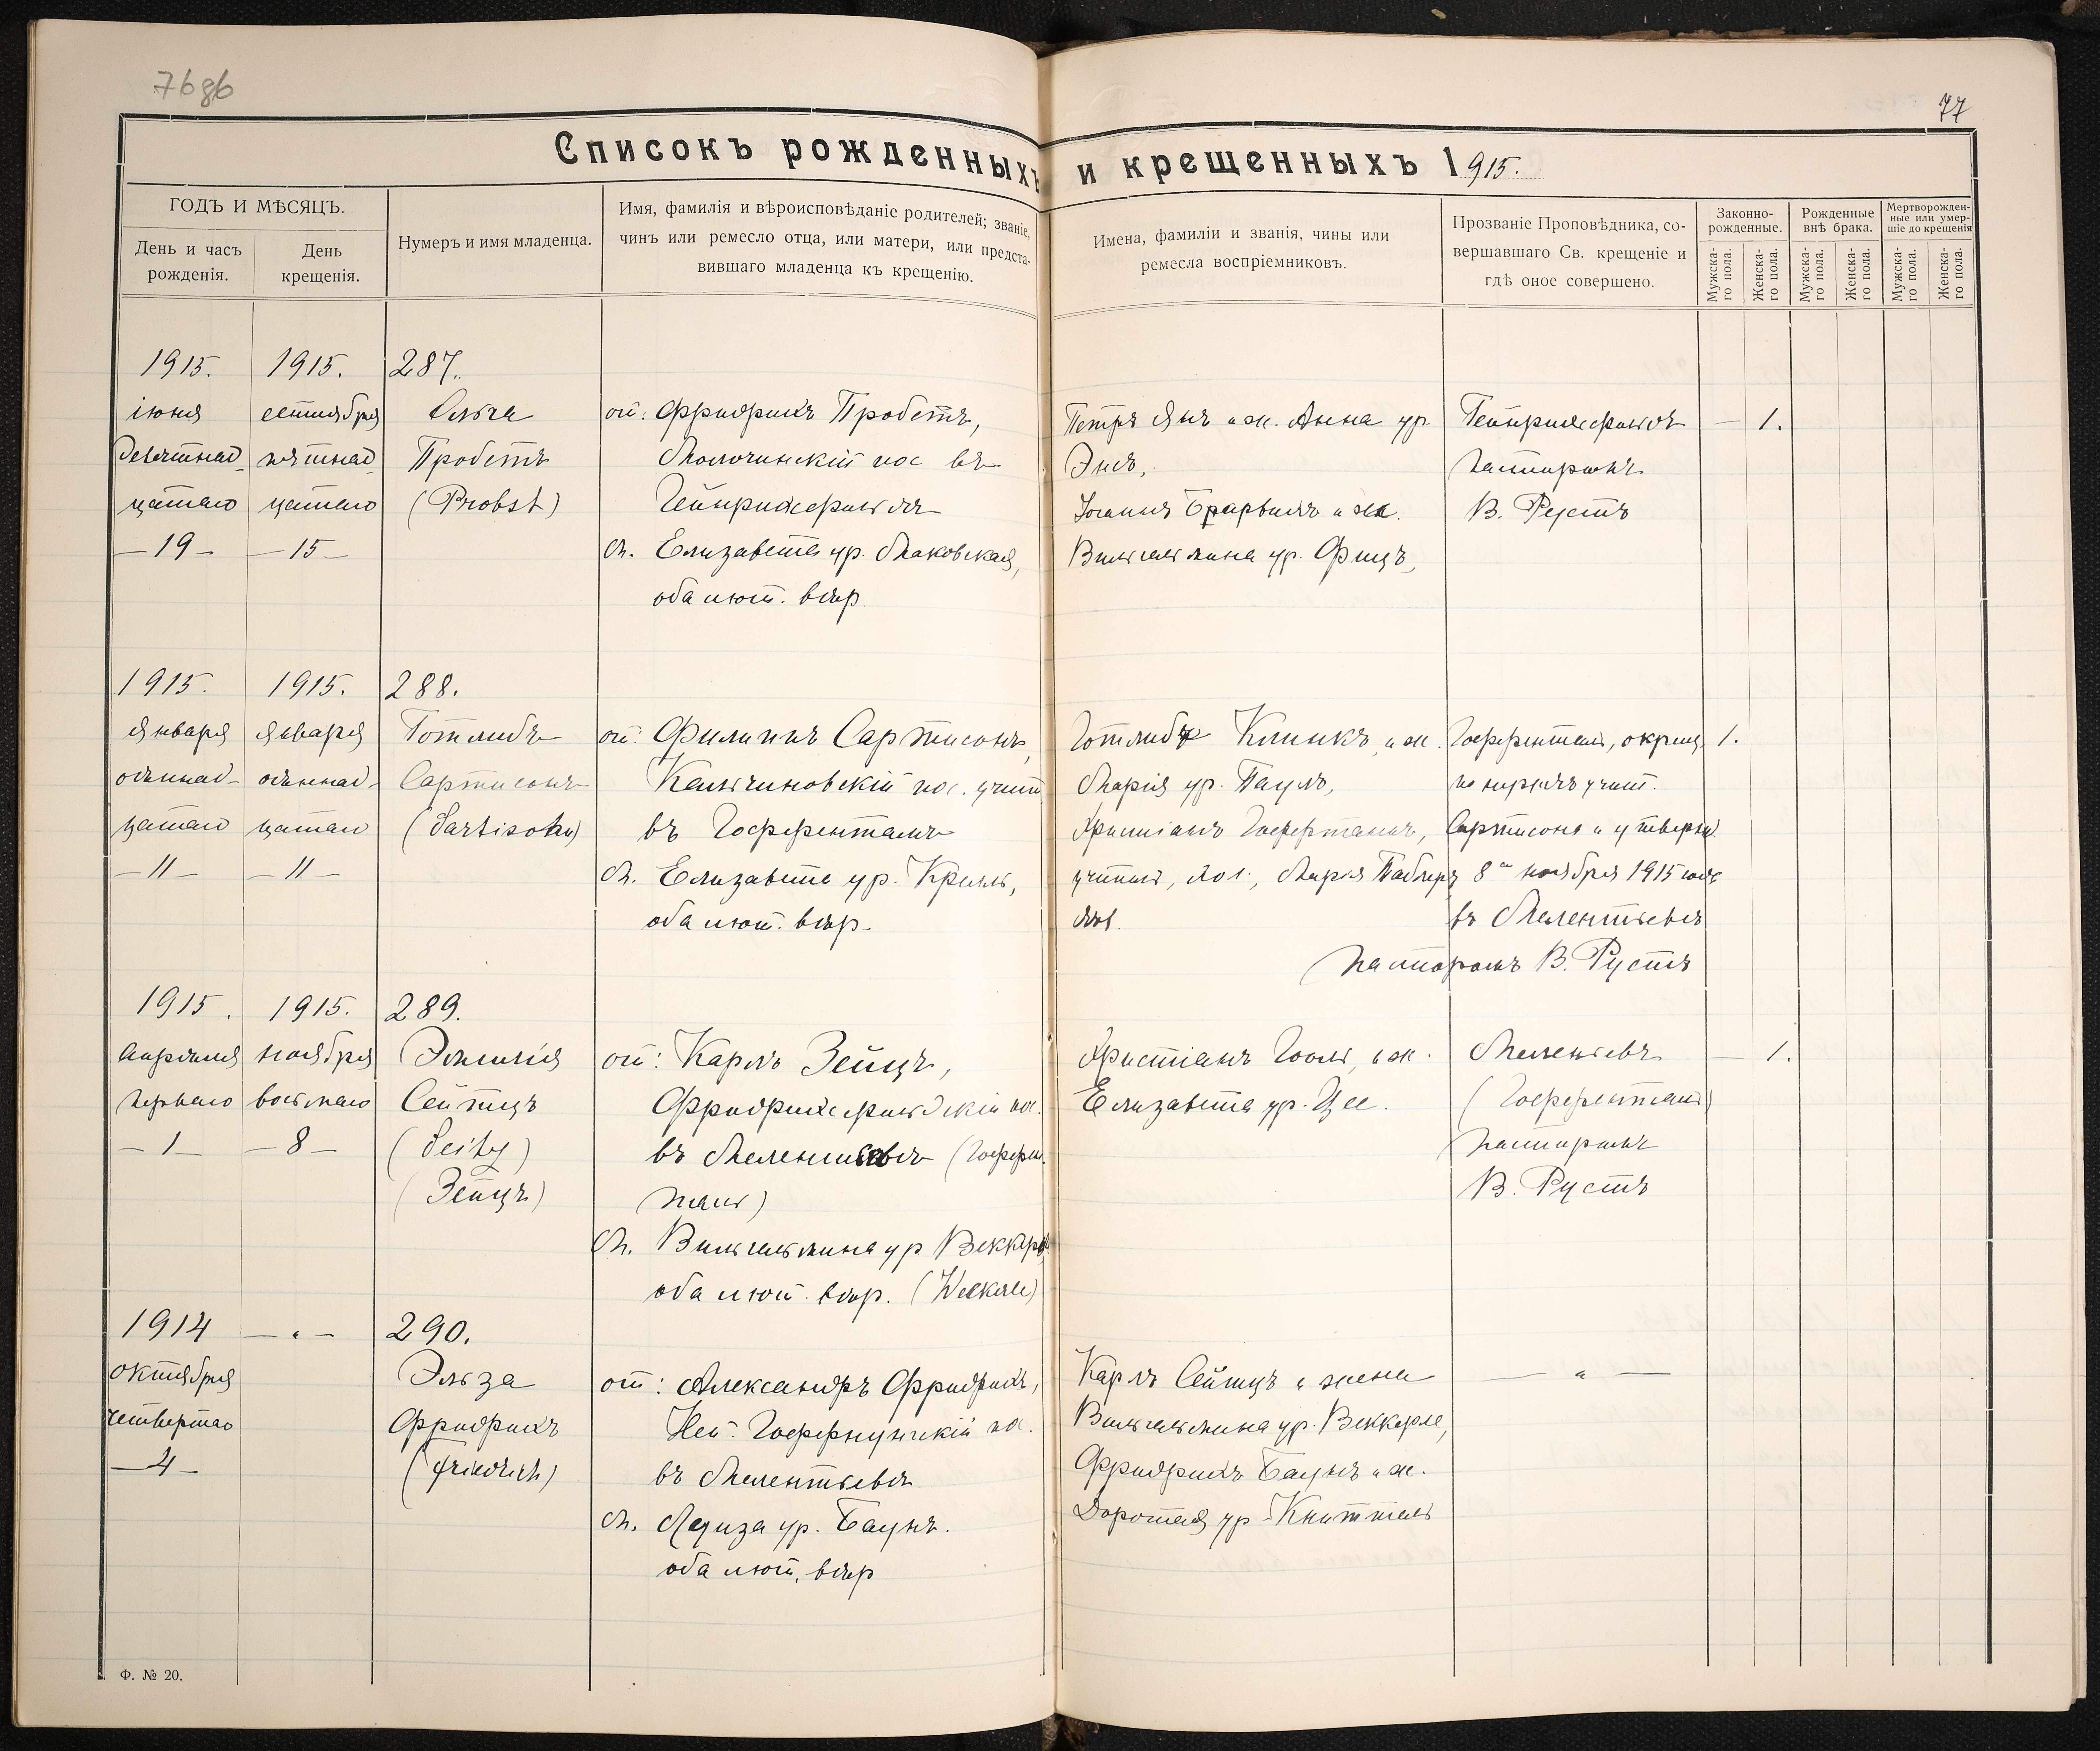 76 об
77
Списокъ рожденныхъ и крещенныхъ 1915.
ГОДЪ И МѢСЯЦЪ.
День и часъ рожденія.
День крещенія.
Нумеръ и имя младенца.
Имя, фамилія и вѣроисповѣданіе родителей; званіе,
чинъ или ремесло отца, или матери, или предста-
вившаго младенца къ крещенію.
Имена, фамиліи и званія, чины или
ремесла воспріемниковъ.
Прозваніе Проповѣдника, со-
вершавшаго Св. крещеніе и
гдѣ оное совершено.
Законно-
рожденные.
Рожденные
внѣ брака.
Мертворожден-
ные или умер-
шіе до крещенія
Мужска-
го пола.
Женска-
го пола.
Мужска-
го пола.
Женска-
го пола.
Мужска-
го пола.
Женска-
го пола.
1915.
іюня
девятнад-
цатаго
— 19 —
1915.
сентября
пятнад-
цатаго
— 15 —
287.
Ольга
Пробстъ
(Probst)
от: Фридрихъ Пробстъ,
Молочинскій пос въ
Гейнрихсфельдѣ
М. Елизавета ур. Маковская,
оба лют. вѣр.
Петръ Янъ и ж. Анна ур.
Энсъ,
Іоганнъ и ж.
Вильгельмина ур. Фицъ,
Гейнрихсфельдъ
пасторомъ
В. Рустъ
— 1.
1915.
января
одиннад-
цатаго
— 11 —
1915.
января
одиннад-
цатаго
— 11 —
288.
Готлибъ
Сартисонъ
(Sartisohn)
от: Филиппъ Сартисонъ,
Кальчиновскій пос. учит.
въ Гоффентальѣ
М. Елизавета ур. Крилль,
оба лют. вѣр.
Готлибъ Клинкъ и ж.
Марія ур. Пауль,
Христіанъ
учитель, Марія
Гоффенталь, окрещ.
учит.
Сартисонъ и утвержд.
8го ноября 1915 года
въ Мелентьевѣ
пасторомъ В. Рустъ
1.
1915.
апрѣля
перваго
— 1 —
1915.
ноября
восьмаго
— 8 —
289.
Эмилія
Сейтцъ
(Seitz)
(Зейцъ)
от: Карлъ Зейцъ,
Фридрихсфельдскій пос.
въ Мелентьевѣ (Гоффен-
таль)
М. Вильгельмина ур Веккерле
оба лют. вѣр. (Wekerle)
Христіанъ и ж.
Елизавета ур. Цее.
Мелентьевъ
(Гоффенталь)
пасторомъ
В. Рустъ
— 1.
1914
октября
четвертаго
— 4 —
— " —
290.
Эльза
Фридрихъ
(Friedrich)
от: Александръ Фридрихъ,
Ней-Гоффнунгскій пос.
въ Мелентьевѣ
М. Луиза ур. Баунъ.
оба лют. вѣр
Карлъ Сейтцъ и жена
Вильгельмина ур. Веккерле,
Фридрихъ Баунъ и ж.
Доротея ур. Книттель
— " —
Ф. № 20.